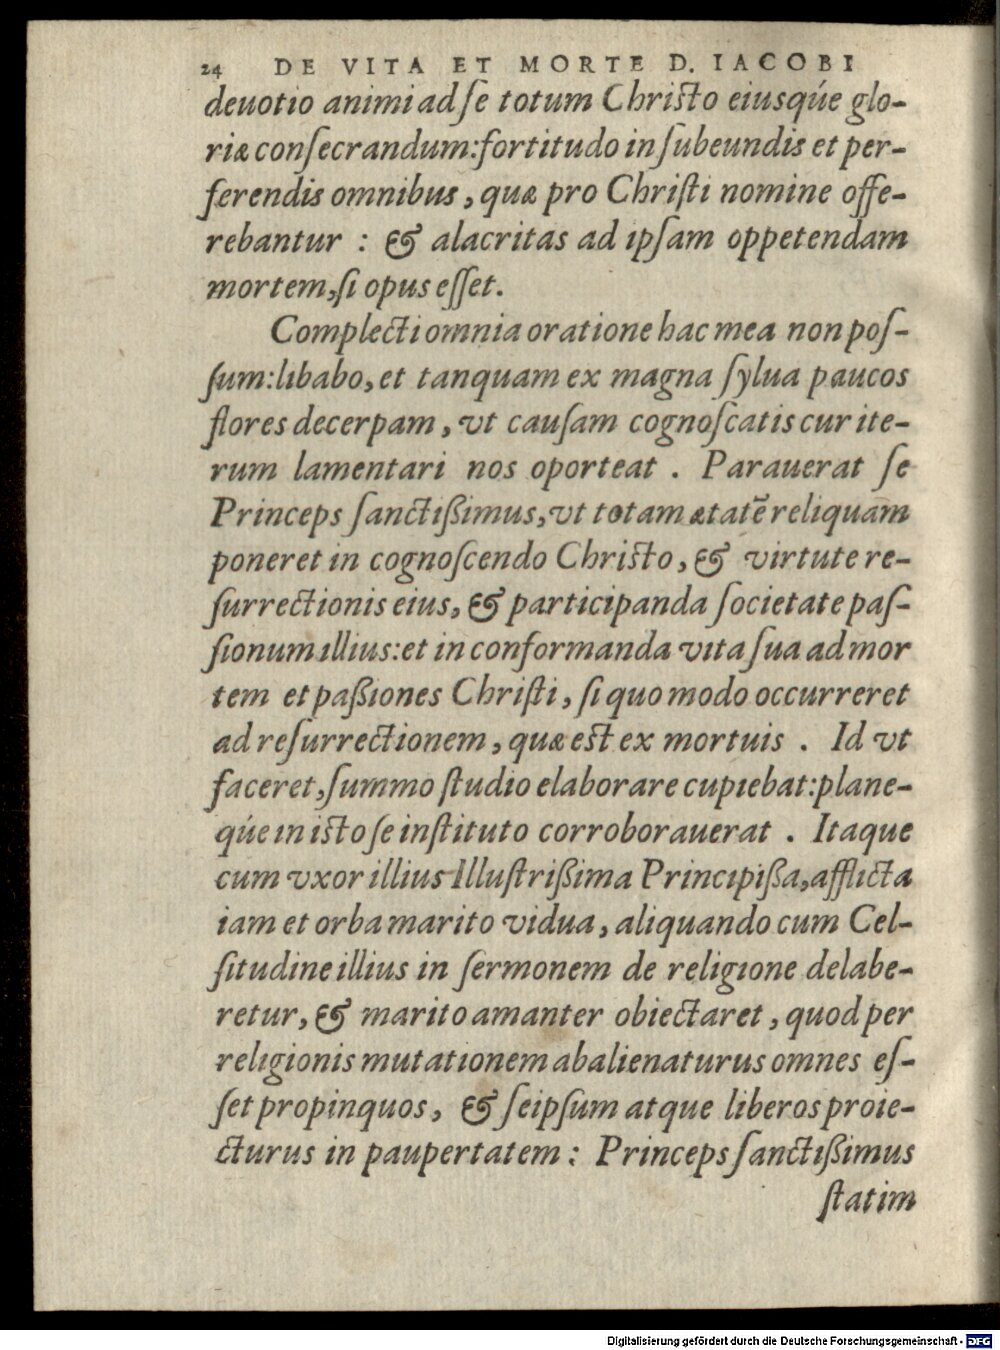 24 DE VITA ET MORTE D. IACOBI
deuotio animi ad ſe totum Chriſto eiusqúe glo-
riæ conſecrandum: fortitudo in ſubeundis et per-
ferendis omnibus, quæ pro Chriſti nomine offe-
rebantur : & alacritas ad ipſam oppetendam
mortem, ſi opus eſſet.
Complecti omnia oratione hac mea non poſ-
ſum: libabo, et tanquam ex magna ſylua paucos
flores decerpam, vt cauſam cognoſcatis cur ite-
rum lamentari nos oporteat . Parauerat ſe
Princeps ſanctißimus, vt totam ætatē reliquam
poneret in cognoſcendo Chriſto, & virtute re-
ſurrectionis eius, & participanda ſocietate paſ-
ſionum illius: et in conformanda vita ſua ad mor
tem et paßiones Chriſti, ſi quo modo occurreret
ad reſurrectionem, quæ eſt ex mortuis . Id vt
faceret, ſummo ſtudio elaborare cupiebat: plane-
qúe in iſto ſe inſtituto corroborauerat . Itaque
cum vxor illius Illuſtrißima Principißa, afflicta
iam et orba marito vidua, aliquando cum Cel-
ſitudine illius in ſermonem de religione delabe-
retur, & marito amanter obiectaret, quod per
religionis mutationem abalienaturus omnes eſ-
ſet propinquos, & ſeipſum atque liberos proie-
cturus in paupertatem : Princeps ſanctißimus
ſtatim
Digitalisierung gefördert durch die Deutsche Forschungsgemeinschaft - DFG